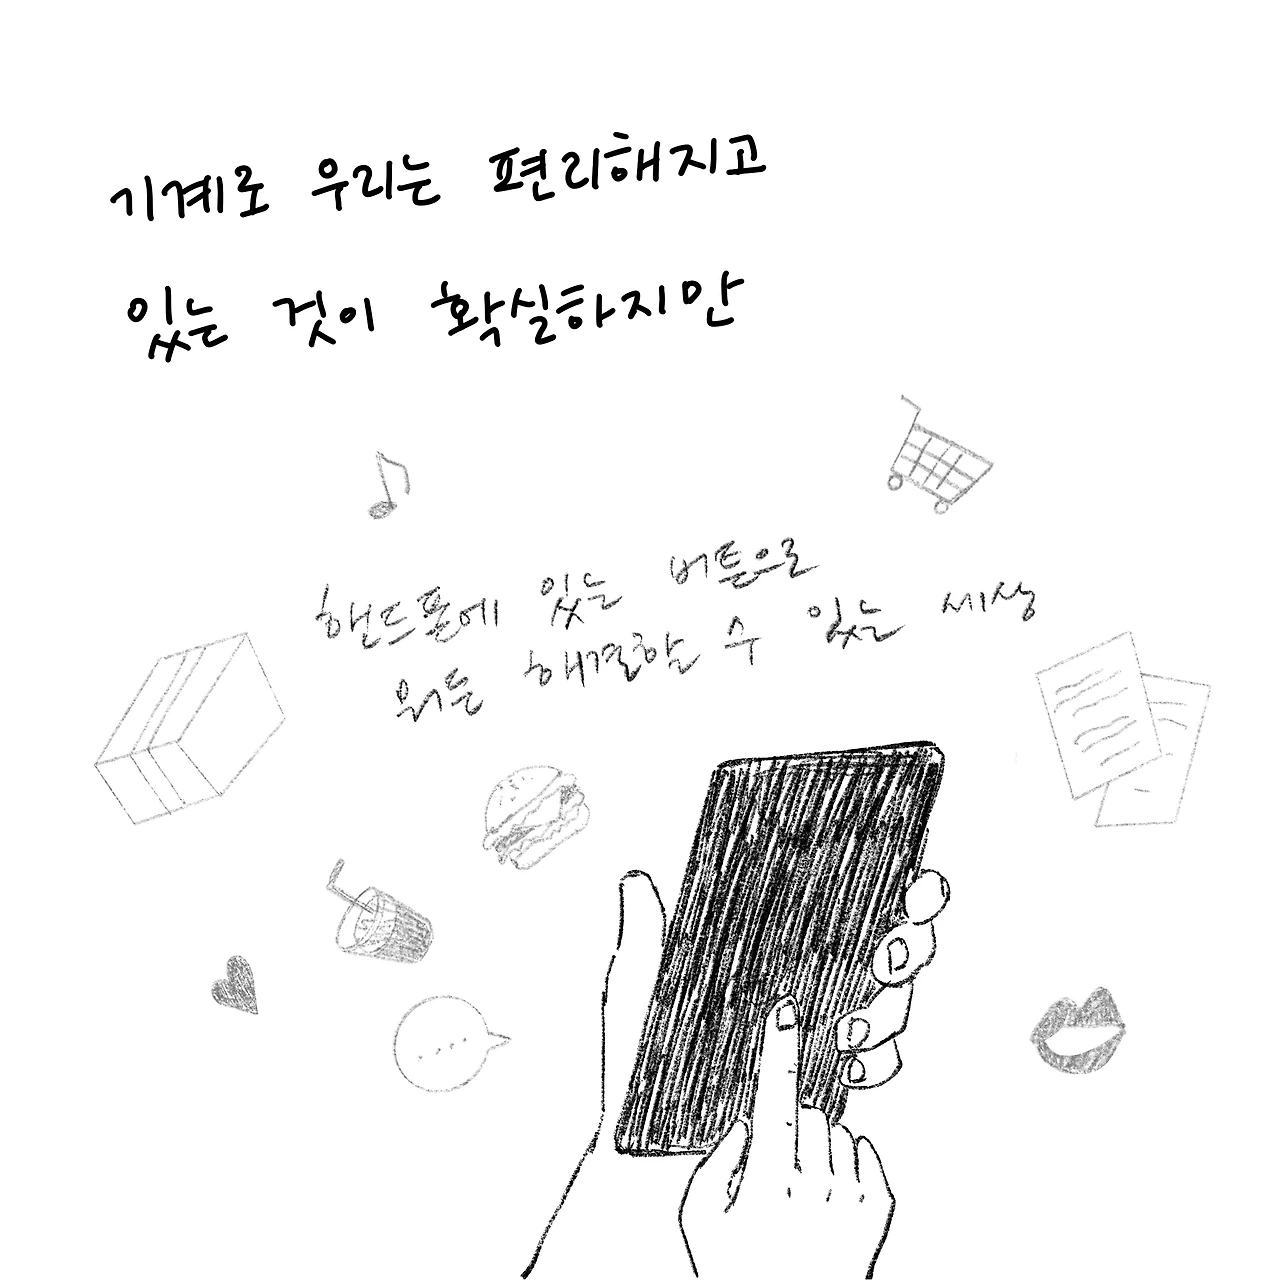 기계로 우리는 편리해지고
있는 것이 확실하지만
핸드폰에 있는 버튼으로
뭐든 해결할 수 있는 세상